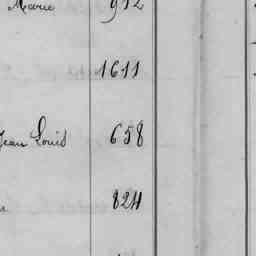 Marie 912
1611
Jean Louis 658
824